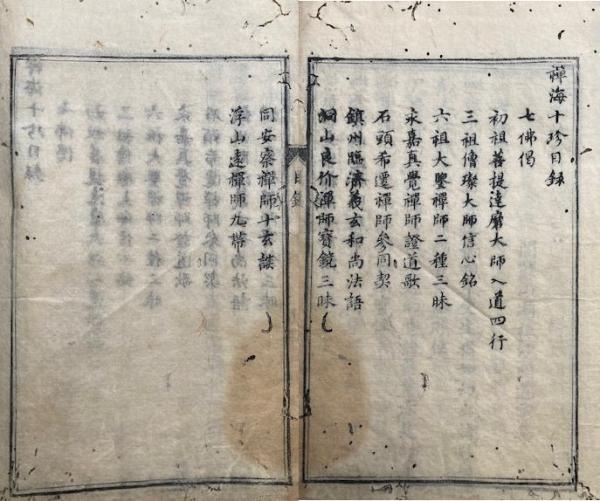 禪海十珍目録
七佛偈
初祖菩提達磨大師入道四行
三祖僧璨大師信心銘
六祖大鑒禪師二種三昧
永嘉真覺禪師證道歌
石頭希遷禪師參同契
鎮州臨濟義玄和尚法語
洞山良价禪師寳鏡三昧
目録
同安察禪師十玄談
浮山遠禪師九帶